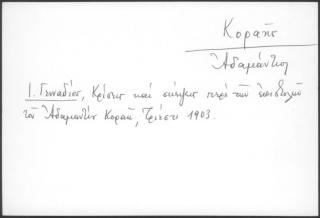 Κοραῆς
Ἀδαμάντιος
Ι. Γεννάδιος, Κρίσεις καὶ σκέψεις περὶ τῶν ἐπιστολῶν
τοῦ Ἀδαμαντίου Κοραῆ, Τριέστι 1903.